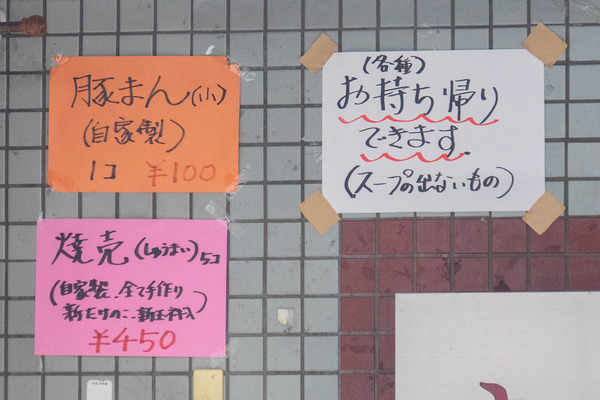 豚まん(小)
(自家製)
1コ ¥100
(各種)
お持ち帰り
できます。
(スープの出ないもの)
焼売(しゅうまい)5コ
(自家製.全て手作り
新たけのこ、新玉ネギ入)
¥450